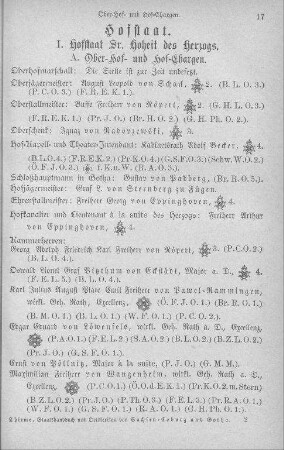 Ober-Hof- und Hof-Chargen. 17
Hofstaat.
I. Hofstaat Sr. Hoheit des Herzogs.
A. Ober-Hof- und Hof-Chargen.
Oberhofmarschall: Die Stelle ist zur Zeit unbesetzt.
Oberjägermeister: August Leopold von Schad, 2. (B. L. O. 3.)
(P. C. O. 3.) (F. H. E. K. 1.)
Oberstallmeister: Freiherr von Röpert, 2. (G. H. L. O. 3.)
(F. H. E. K. 1.) (Pr. J. O.) (Br. H. O. 2.) (G. H. Ph. O. 2.)
Oberschenk: Ignaz von
Hof-Kapell- und Theater-Intendant: Kabinetsrath Adolf Becker, 4.
(B. L. O. 4.) (F. R. E. K. 2.) (Pr. K. O. 4.) (G. S. F. O. 3.) (Schw. W. O. 2.)
(Ö. F. J. O. 2.) (I. K. u. W. (R. A. O. 3.)
Schloßhauptmann in Gotha: Gustav von Padberg, (Br. H. O. 3.)
Hofjägermeister: Graf L. von Sternberg zu Fügen.
Ehrenstallmeister: Freiherr Georg von Eppinghoven, 4.
Hofkavalier und Lieutenant à la suite des Herzogs: Freiherr Arthur
von Eppinghoven, 4.
Kammerherren:
Georg Adolph Friedrich Karl Freiherr von Röpert, 3. (P. C. O. 2.)
(B. L. O. 4.)
Oswald Eduard Graf Vitzthum von Eckstädt, Major a. D., 4.
(F. E. L. 5.) (B. L. O. 4.)
Karl Julius August Plato Emil Freiherr von Pawel-Rammingen,
wirkl. Geh. Rath, Exzellenz, (Ö. F. J. O. 1.) (Br. E. O. 1.)
(B. M. O. 2.) (B. L. O. 1.) (W. F. O. 1.) (P. C. O. 2.)
Edgar Eduard von Löwenfels, wirkl. Geh. Rath a. D., Exzellenz,
(P. A. O. 1.) (F. E. L. 2.) (S. A. O. 2.) (B. L. O. 2.) (B. Z. L. O. 2.)
(Pr. J. O.) (G. S. F. O. 1.)
Ernst von Pöllnitz, Major à la suite, (P. J. O.) (G. M. M.)
Maximilian Freiherr von Wangenheim, wirkl. Geh. Rath a. D.,
Exzellenz, (P. C. O. 1.) (Ö. O. d. E. K. 1.) (Pr. K. O. 2. m. Stern)
(B. Z. L. O. 2.) (Pr. J. O.) (B. L. O. 2.) (F. E. L. 3.) (Pr. R. A. O. 1.)
(W. F. O. 1.) (G. S. F. O. 1.) (R. A. O. 1.) (G. H. Ph. O. 1.)
Staatshandbuch und Ortslexikon von Sachsen-Coburg und Gotha. 2